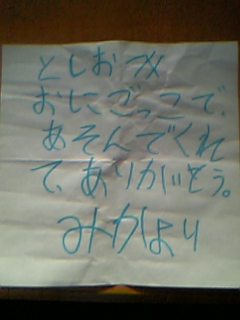 としおづメ
おにごっこで、
あそんでくれ
て、ありがとう。
みかより